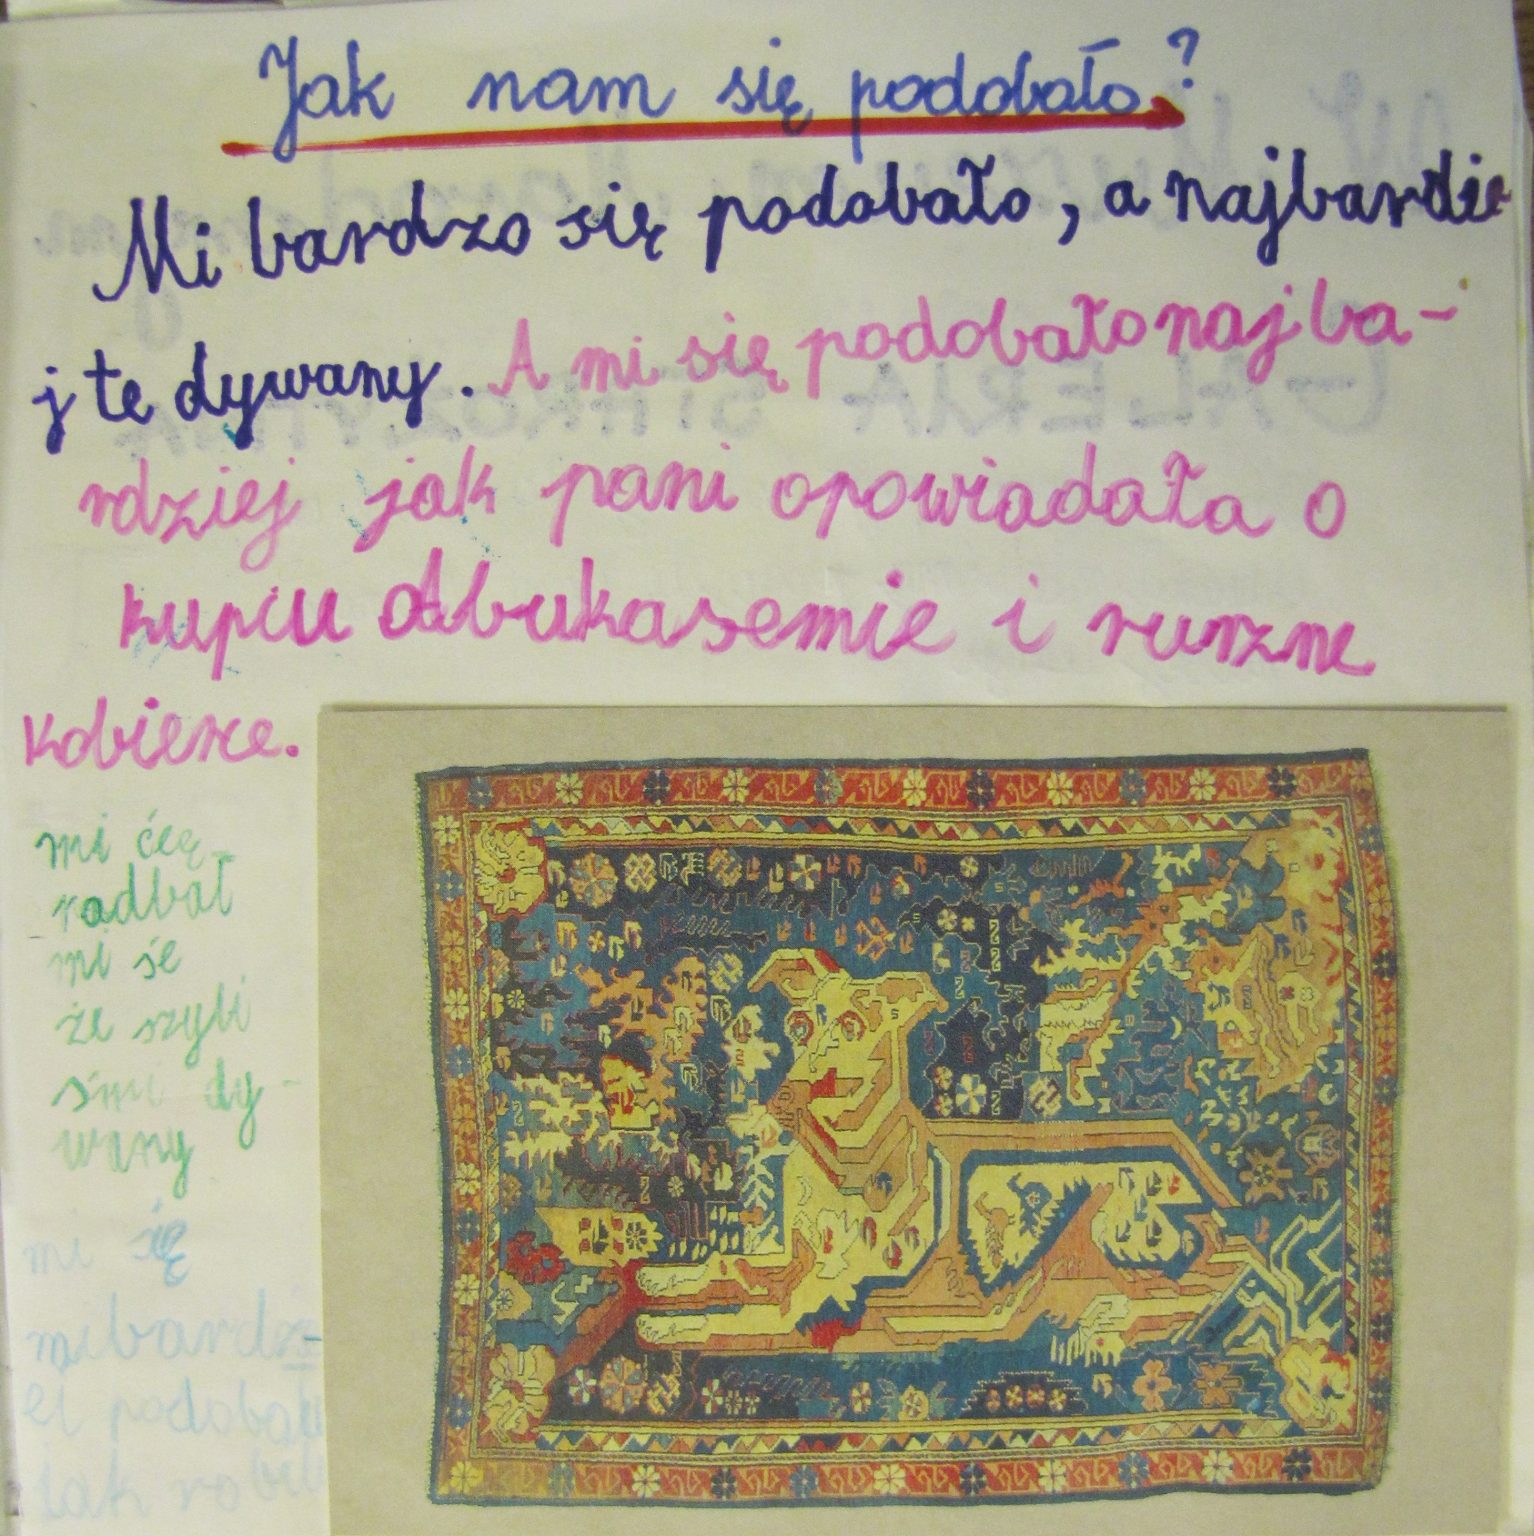 Jak nam się podobało?
Mi bardzo się podobało, a najbardzie
j te dywany. A mi się podobało najba-
rdziej jak pani opowiadała o
kupcu Abukasemie i rurzne
kobierce.
mi
radbał
mi śe
że szyli
śmi dy-
wany
mi się
mibardź-
ei podobało
jak robili